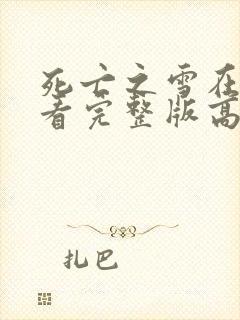 死亡之雪在
看完整版高
扎巴